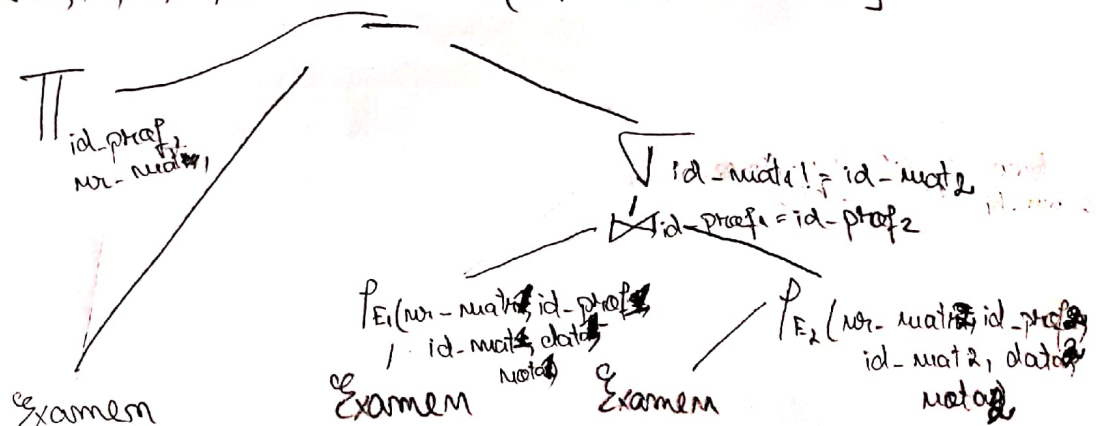 Π id-prof,
nr-matr,
σ id-mat1 != id-mat2
⋈ id-prof1 = id-prof2
ρ E1(nr-matr1, id-prof1,
id-mat1, data1,
nota1)
ρ E2(nr-matr2, id-prof2,
id-mat2, data2,
nota2)
Examen
Examen
Examen